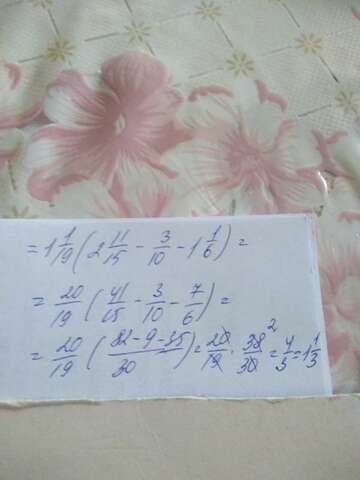 = 1 1/19 ( 2 11/15 - 3/10 - 1 1/6 ) =
= 20/19 ( 41/15 - 3/10 - 7/6 ) =
= 20/19 ( (82 - 9 - 35)/30 ) = 20/19 · 38/30 2 = 4/3 = 1 1/3